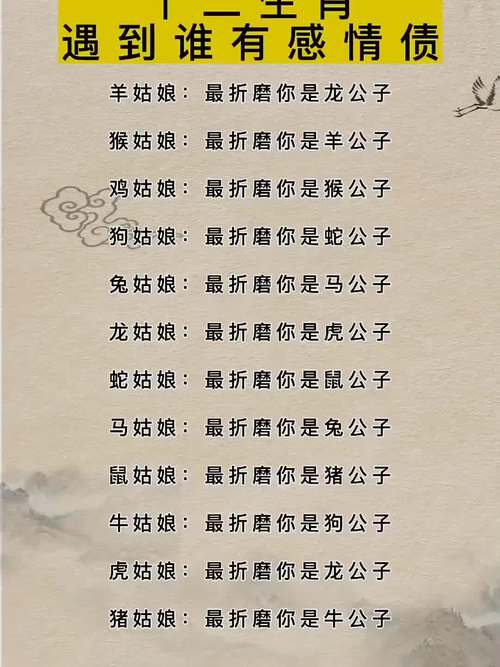 十二生肖
遇到谁有感情债
羊姑娘：最折磨你是龙公子
猴姑娘：最折磨你是羊公子
鸡姑娘：最折磨你是猴公子
狗姑娘：最折磨你是蛇公子
兔姑娘：最折磨你是马公子
龙姑娘：最折磨你是虎公子
蛇姑娘：最折磨你是鼠公子
马姑娘：最折磨你是兔公子
鼠姑娘：最折磨你是猪公子
牛姑娘：最折磨你是狗公子
虎姑娘：最折磨你是龙公子
猪姑娘：最折磨你是牛公子